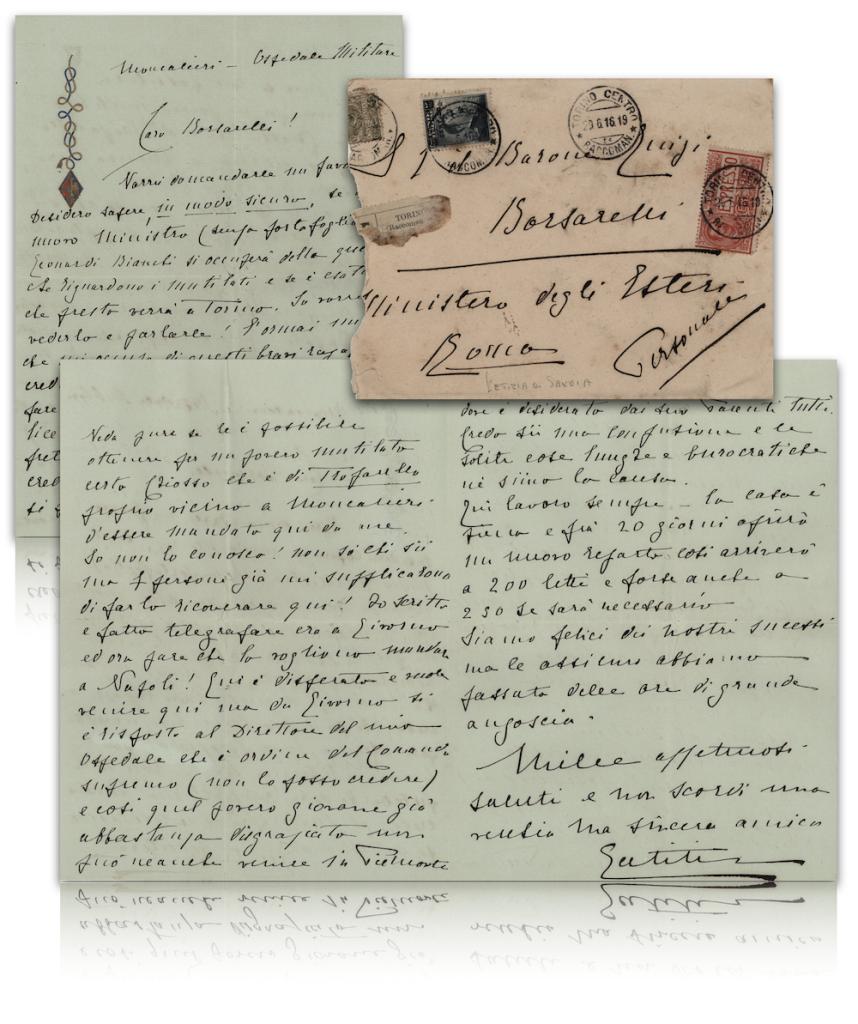 Moncalieri - Ospedale Militare
Caro Borsarelli!
Vorrei domandarle un favo
Desidero sapere in modo sicuro, se
nuovo Ministro (senza portafoglio
Leonardi Bianchi si occuperà della que
che riguardono i mutilati e se è esat
che presto verrà a Torino. Io vorre
vederlo e parlarle! Ormai
che mi occupo di questi bravi raga
cred
fare
lice
pret
cred
si
TORINO CENTRO
29.6.16.19
RACCOMAN.
S. E. il Barone Luigi
Borsarelli
TORINO
(Raccoman
ESPRESSO
Ministero degli Esteri
Roma
Personale
LETIZIA DI SAVOIA
Veda pure se le è possibile
ottenere per un povero mutilato
certo Chiosso che è di Trofarello
proprio vicino a Moncalieri
d'essere mandato qui da me.
Io non lo conosco! non so chi sii
ma 4 persone già mi supplicarono
di farlo ricoverare qui! Ho scritto
e fatto telegrafare era a Livorno
ed ora pare che lo vogliono mandar
a Napoli! Lui è disperato e vuole
venire qui ma da Livorno si
è risposto al Direttore del mio
Ospedale che è ordine del Comando
supremo (non lo posso credere)
e così quel povero giovane già
abbastanza disgraziato non
può neanche venire in Piemonte
dove è desiderato dai suoi parenti tutti.
Credo sii una confusione e le
solite cose lunghe e burocratiche
ni siino la causa.
Qui lavoro sempre - la casa è
piena e frà 20 giorni aprirò
un nuovo reparto così arriverò
a 200 letti e forse anche a
250 se sarà necessario
Siamo felici dei nostri successi
ma le assicuro abbiamo
passato delle ore di grande
angoscia.
Mille affettuosi
saluti e non scordi una
vecchia ma sincera amica
Letitia